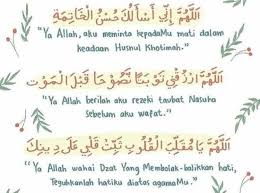 اَللَّهُمَّ إِنِّي أَسْأَلُكَ حُسْنَ الْخَاتِمَةِ
"Ya Allah, aku meminta kepadaMu mati dalam
keadaan Husnul Khotimah."
اَللَّهُمَّ ارْزُقْنِي تَوْبَةً نَصُوْحًا قَبْلَ الْمَوْتِ
"Ya Allah berilah aku rezeki taubat Nasuha
sebelum aku wafat."
اَللَّهُمَّ يَا مُقَلِّبَ الْقُلُوْبِ ثَبِّتْ قَلْبِي عَلَى دِيْنِكَ
"Ya Allah wahai Dzat Yang Membolak-balikkan hati,
Teguhkanlah hatiku diatas agamaMu."